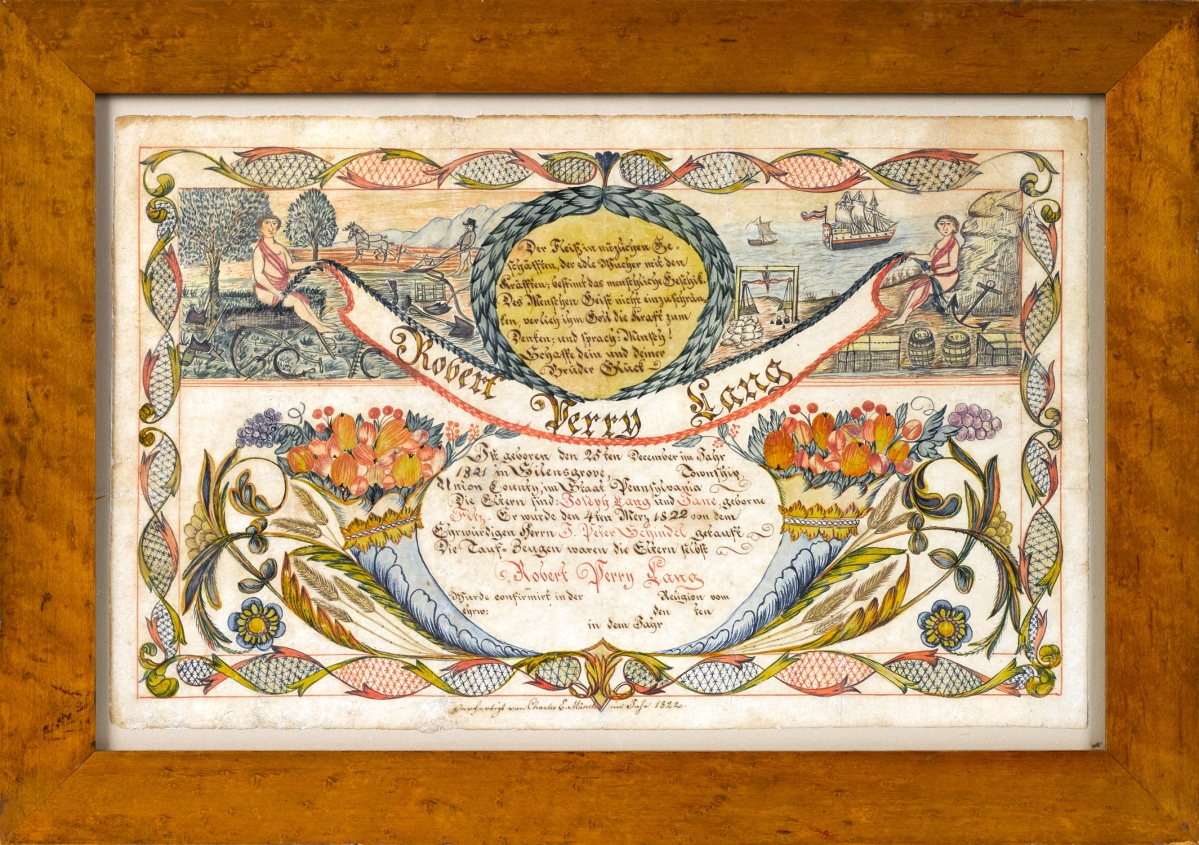 Der Fleiß in nüzlichen Ge-
schäfften, der edle Wucher mit den
Kräfften, bestimt das menschliche Geschik
Des Menschen Geist nicht einzuschrän
ken, verlieh ihm Gott die Kraft zum
Denken, und sprach: Mensch!
Schaffe dein und deiner
Brüder Glück
Robert Perry Lang
Ist geboren den 25ten December im Jahr
1821 in Silensgrove Township
Union County, im Staat Pennsylvania
Die Eltern sind: Joseph Lang und Jane, geborne
Er wurde den 4ten Merz 1822 von dem
Ehrwürdigen Herrn J. Peter Schindel getauft
Die Tauf-Zeugen waren die Eltern selbst
Robert Perry Lang
Wurde confirmirt in der Religion vom
Ehrw: den ten
in dem Jahr
Verfertigt von Charles E. Münch im Jahr 1822.